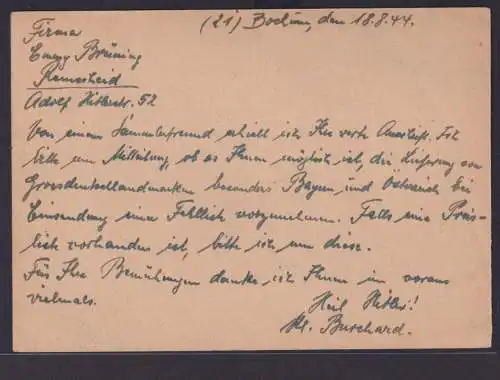 (21) Bochum, den 18.8.44.
Firma
Brüning
Remscheid
Adolf Hitlerstr. 52
Von einem Sammlerfreund erhielt ich Ihre werte Anschrift. Ich
bitte um Mitteilung, ob es Ihnen möglich ist, die Lieferung von
Grossdeutschlandmarken besonders Bayern und Östreich bei
Einsendung einer Fehlliste vorzunehmen. Falls eine Preis-
liste vorhanden ist, bitte ich um diese.
Für Ihre Bemühungen danke ich Ihnen im voraus
vielmals.
Heil Hitler!
Burchard.